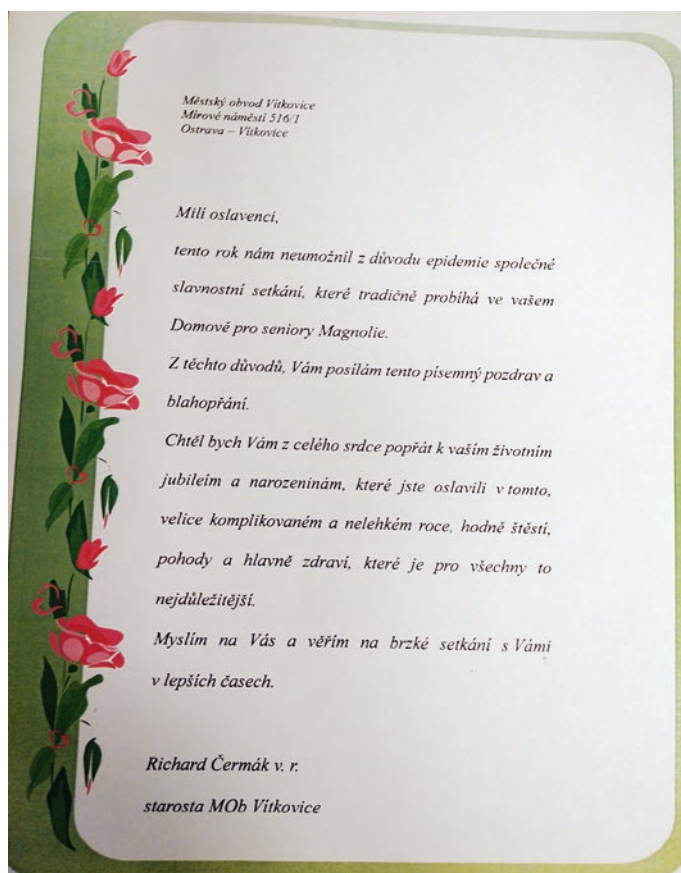 Městský obvod Vítkovice
Mírové náměstí 516/1
Ostrava – Vítkovice
Milí oslavenci,
tento rok nám neumožnil z důvodu epidemie společné
slavnostní setkání, které tradičně probíhá ve vašem
Domově pro seniory Magnolie.
Z těchto důvodů, Vám posílám tento písemný pozdrav a
blahopřání.
Chtěl bych Vám z celého srdce popřát k vaším životním
jubileím a narozeninám, které jste oslavili v tomto,
velice komplikovaném a nelehkém roce, hodně štěstí,
pohody a hlavně zdraví, které je pro všechny to
nejdůležitější.
Myslím na Vás a věřím na brzké setkání s Vámi
v lepších časech.
Richard Čermák v. r.
starosta MOb Vítkovice